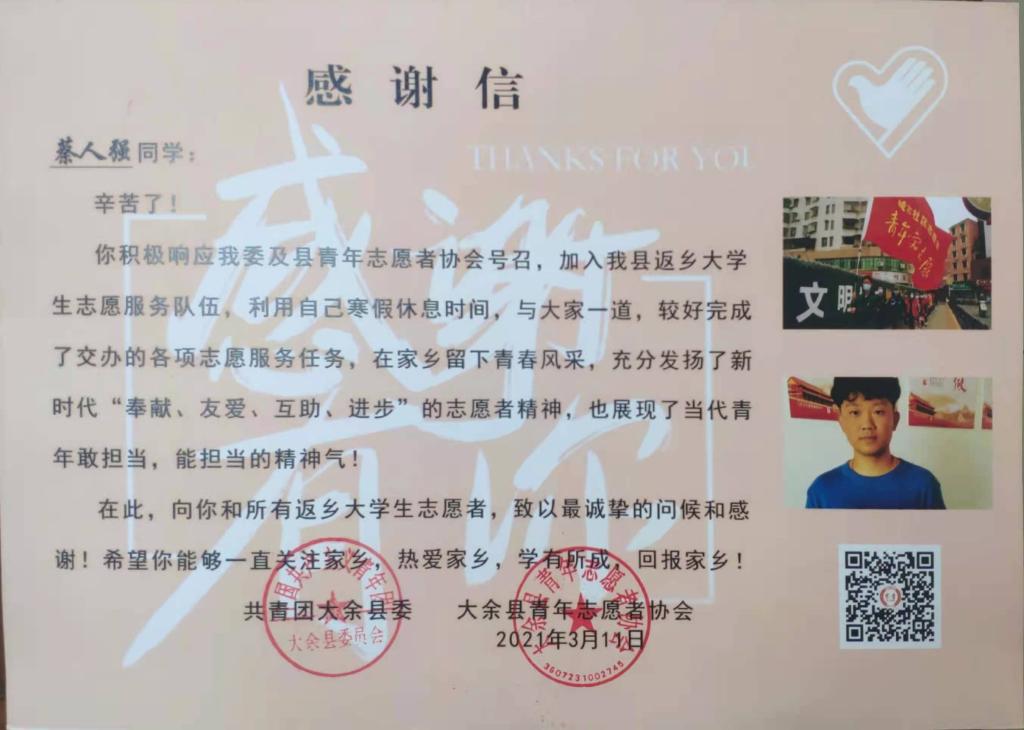 感谢信
THANKS FOR YOU
蔡人强同学：
辛苦了！
你积极响应我委及县青年志愿者协会号召，加入我县返乡大学
生志愿服务队伍，利用自己寒假休息时间，与大家一道，较好完成
了交办的各项志愿服务任务，在家乡留下青春风采，充分发扬了新
时代“奉献、友爱、互助、进步”的志愿者精神，也展现了当代青
年敢担当，能担当的精神气！
在此，向你和所有返乡大学生志愿者，致以最诚挚的问候和感
谢！希望你能够一直关注家乡，热爱家乡，学有所成，回报家乡！
共青团大余县委 大余县青年志愿者协会
2021年3月11日
感谢有你
大余县委员会
大余县青年志愿者协会
3607231002745
文明